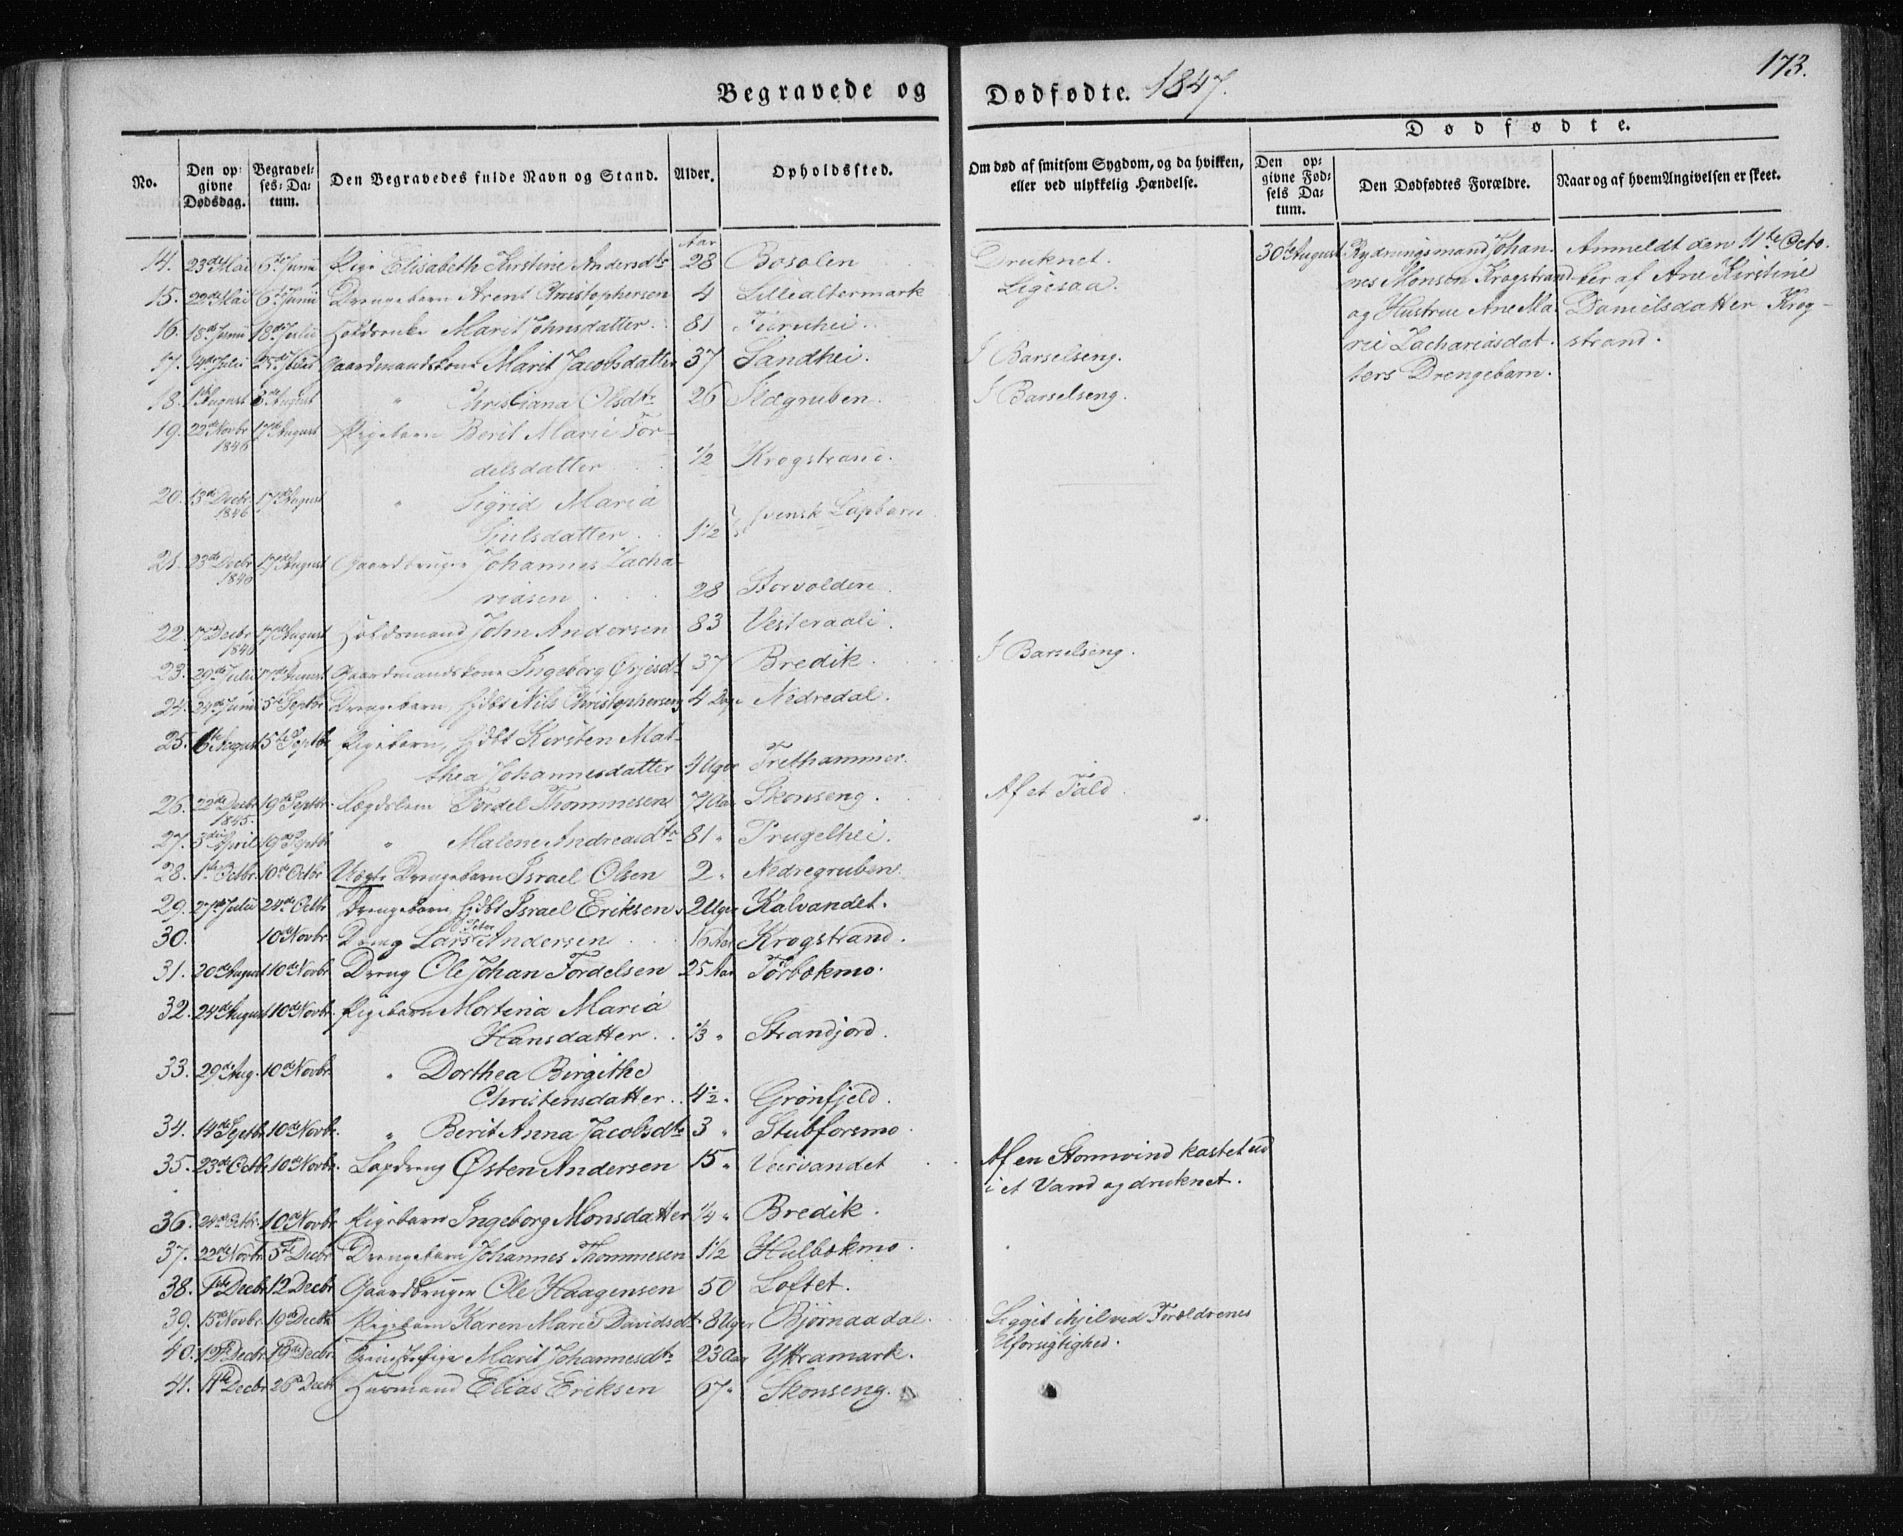 173.
Begravede og Dødfødte. 1847.
Dødfødte.
No. Den opgivne Dødsdag. Begravelses-Datum. Den Begravedes fulde Navn og Stand. Alder. Opholdssted. Om død af smitsom Sygdom, og da hvilken, eller ved ulykkelig Hændelse. Den opgivne Fødsels Datum. Den Dødfødtes Forældre. Naar og af hvem Angivelsen er skeet.
Aar
14. 23de Mai 6te Junii Pige Elisabeth Kirstine Andersdtr 28 Bosolen Druknet. 30te August Rydningsmand Johan- Anmeldt den 11te Octo-
15. 22de Mai 6te Junii Drengebarn Arent Christophersen 4 Lillealtermark Ligesaa. nes Monsen Krogstrand ber af Ane Kirstine
16. 18de Junii 18de Julii Marit Johnsdatter. 81 Furuhei. og Hustrue Ane Ma- Danielsdatter Krog-
17. 14de Julii 25de Julii Gaardmandskone Marit Jacobsdatter 37 Sandhei. I Barselseng. rie Zachariasdat- strand.
18. 1ste August August " Christiana Olsdtr 26 Ildgruben. I Barselseng. ters Drengebarn.
19. 22de Novbr 1846 17de August Pigebarn Berit Marie Tor-
delsdatter 1/2 Krogstrand.
20. 13de Decbr 1846 17de August " Sigrid Maria
datter 1 1/2 Svensk Lapbarn
21. 23de Decbr 1846 17de August Gaardbruger Johannes Zacha-
riasen 28 Storvolden.
22. 17de Decbr 1846 17de August Holdsmand John Andersen 83 Vesteraali.
23. 29de Julii 17de August Gaardmandskone Ingeborg Ørjesdtr 37 Bredik. I Barselseng.
24. 24de Junii 5te Septbr Drengebarn, Hdbt Nils Christophersen 4 Dage Nedredal.
25. 6te August 5te Septbr Pigebarn, Hdbt Kirsten Mat-
thea Johannesdatter 4 Uger Trethammer.
26. 22de Decbr 1845. 19de Septbr. Lægdslem Tordel Thommesen 71 Aar Skonseng. Af et Fald.
27. 3die April 19de Septbr " Malene Andreasdtr 81 " Prugelhei.
28. 1ste Octbr. 10de Octbr. Uægte Drengebarn Israel Olsen 2 " Nedregruben.
29. 27de Julii 24de Octbr Drengebarn Hdbt Israel Eriksen. 2 Uger Kalvandet.
30. 10de Novbr Dreng Lars Peter Andersen 16 Aar Krogstrand.
31. 20de August 10de Novbr. Dreng Ole Johan Tordelsen 25 Aar Tørbekmo.
32. 24de August 10de Novbr. Pigebarn Mortina Maria
Hansdatter. 1/3 " Strandjord.
33. 29de Aug. 10de Novbr. " Dorthea Birgithe
Christensdatter. 4 1/2 " Grønfjeld.
34. 14de Septbr. 10de Novbr. " Berit Anna Jacobsdtr 3 " Stubforsmo.
35. 23de Octbr. 10de Novbr. Lapdreng Østen Andersen 15 " Veirvandet Af en Stormvind kastet ud
i et Vand og druknet.
36. 24de Octbr. 10de Novbr. Pigebarn Ingeborg Monsdatter 1/4 " Bredik.
37. 22de Novbr. 5te Decbr. Drengebarn Johannes Thommesen 1 1/2 Hulbekmo.
38. 1ste Decbr 12 Decbr Gaardbruger Ole Haagensen 50 Loftet.
39. 15de Novbr. 19de Decbr. Pigebarn Karen Marie Davidsdtr 8 Uger Bjørnaadal. Ligget ihjel ved Forældrenes
40. 12te Decbr. 19de Decbr. Tjenestepige Marit Johannesdtr 23 Aar Yttramark. Uforsigtighed.
41. 11te Decbr. 26de Decbr Huusmand Elias Eriksen 67 " Skonseng.